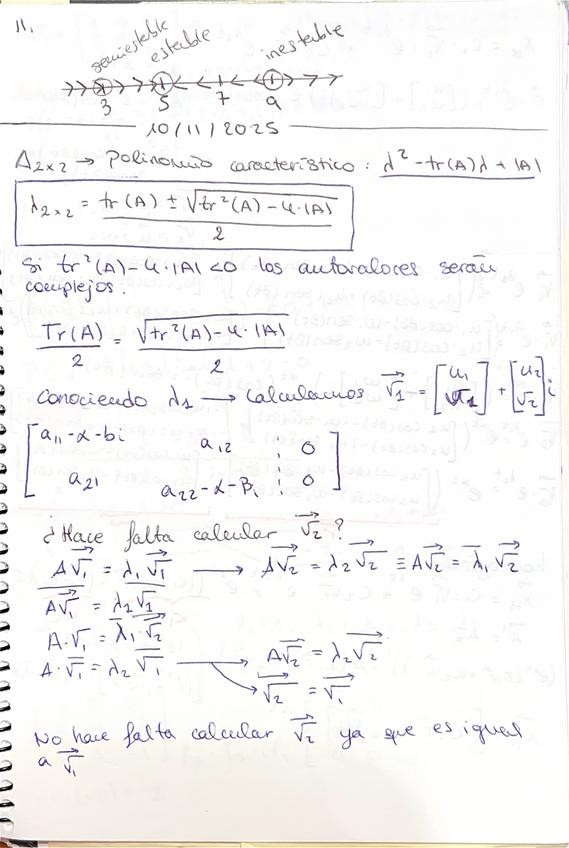 11.
semiestable
estable
inestable
3 5 7 9
10/11/2025
A₂ₓ₂ → Polinomio característico: λ² - tr(A)λ + |A|
λ₂ₓ₂ = (tr(A) ± √(tr²(A) - 4·|A|)) / 2
Si tr²(A) - 4·|A| < 0 los autovalores serán
complejos.
Tr(A)/2 = √(tr²(A) - 4·|A|)/2
Conociendo λ₁ → Calculamos v⃗₁ = [u₁ v₁] + [u₂ v₂]i
[a₁₁-α-bi a₁₂ ⋮ 0
a₂₁ a₂₂-α-Bi ⋮ 0]
¿Hace falta calcular v⃗₂?
Av⃗₁ = λ₁v⃗₁ → Av⃗₂ = λ₂v⃗₂ ≡ Av⃗₂ = λ̄₁v⃗₂
A̅v̅⃗₁ = λ₂v⃗₁
A·v̅₁ = λ̄₁·v⃗₂
A·v̅₁ = λ₂ v̅⃗₁ → Av⃗₂ = λ₂v⃗₂
v⃗₂ = v̅⃗₁
No hace falta calcular v⃗₂ ya que es igual
a v̅⃗₁